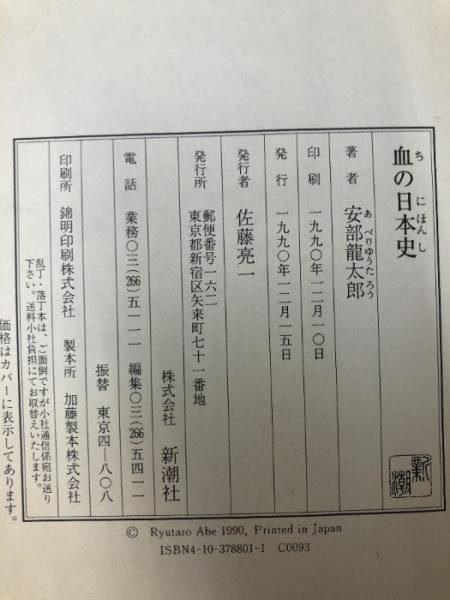 血の日本史
ち
にほんし
著者 安部龍太郎
あべりゅうたろう
印刷 一九九〇年一二月一〇日
発行 一九九〇年一二月一五日
発行者 佐藤亮一
発行所
郵便番号一六二
東京都新宿区矢来町七十一番地
株式会社 新潮社
電話 業務〇三(266)五一一一 編集〇三(266)五四一一
振替 東京四—八〇八
印刷所 錦明印刷株式会社 製本所 加藤製本株式会社
乱丁・落丁本は、ご面倒ですが小社通信係宛お送り
下さい。送料小社負担にてお取替えいたします。
価格はカバーに表示してあります。
新潮
© Ryutaro Abe 1990, Printed in Japan
ISBN4-10-378801-1 C0093